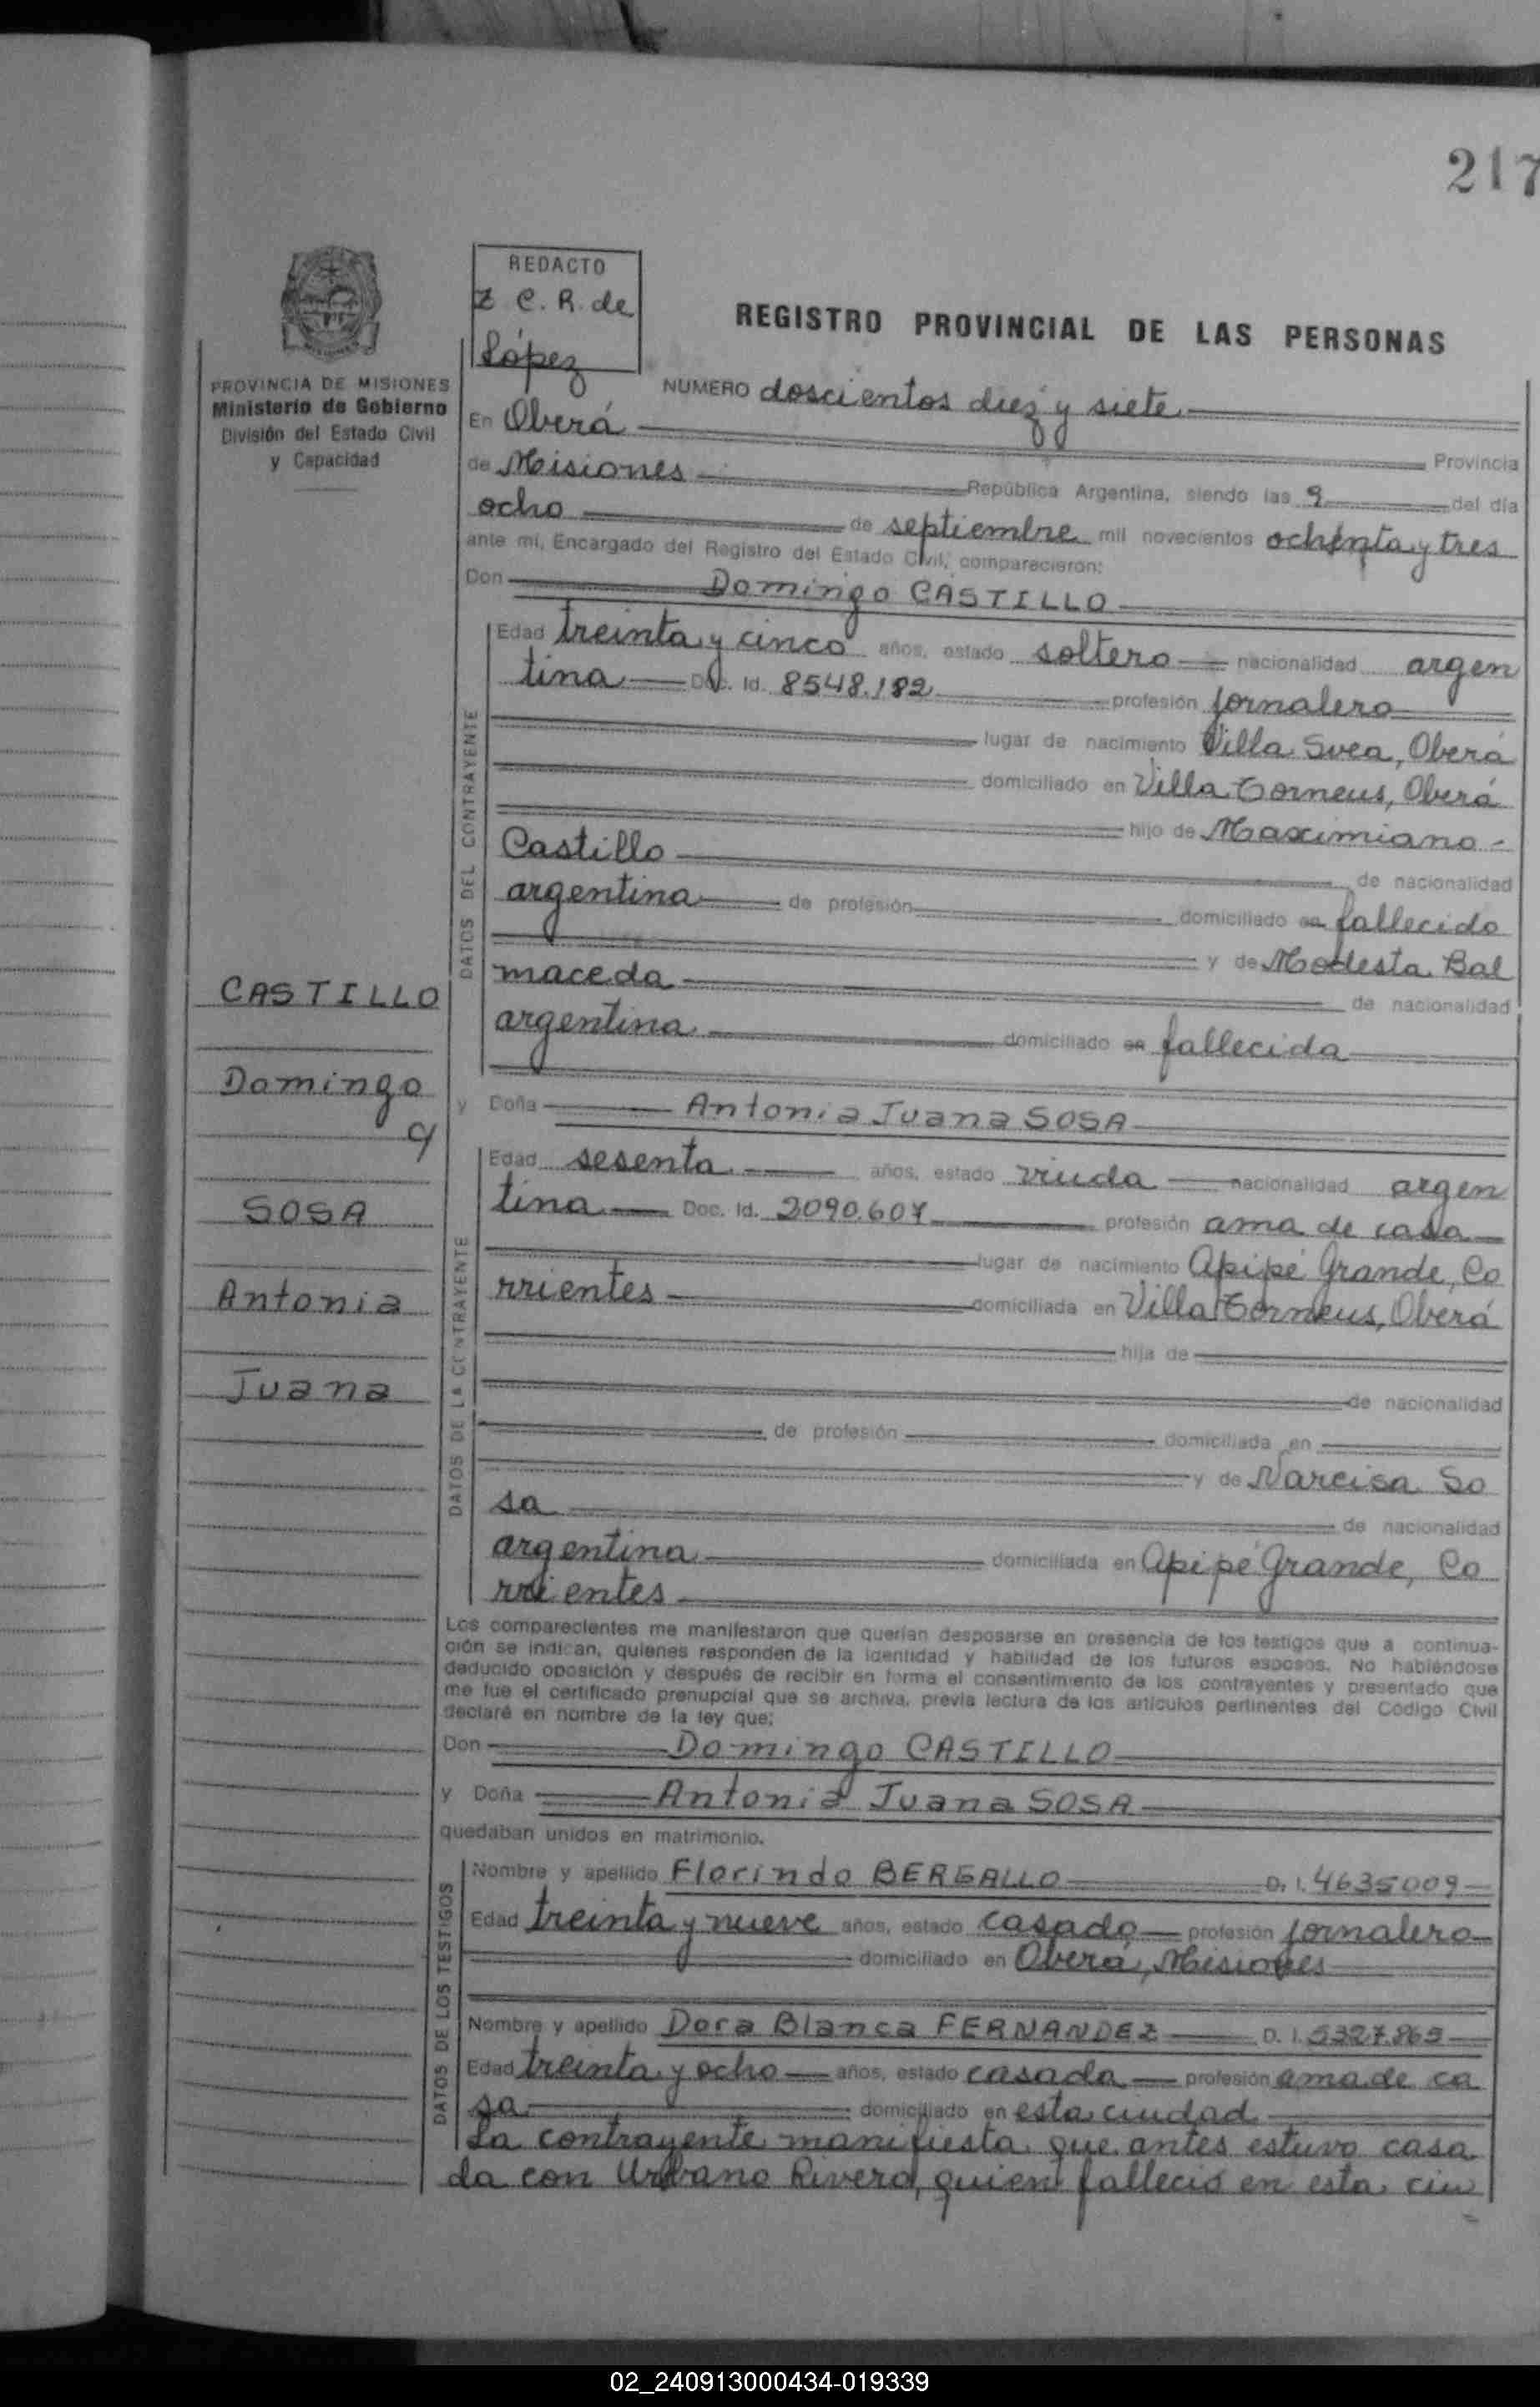 217
REDACTO
Z C. R. de
López
REGISTRO PROVINCIAL DE LAS PERSONAS
PROVINCIA DE MISIONES
Ministerio de Gobierno
División del Estado Civil
y Capacidad
NUMERO doscientos diez y siete
En Oberá
Provincia
de Misiones República Argentina, siendo las 9 del día
ocho de septiembre mil novecientos ochenta y tres
ante mí, Encargado del Registro del Estado Civil, comparecieron:
Don Domingo CASTILLO
DATOS DEL CONTRAYENTE
Edad treinta y cinco años, estado soltero nacionalidad argen
tina Doc. Id. 8548.182 profesión jornalero
lugar de nacimiento Villa Svea, Oberá
domiciliado en Villa Torneus, Oberá
hijo de Maximiano -
Castillo de nacionalidad
argentina de profesión domiciliado en fallecido
y de Modesta Bal
maceda de nacionalidad
argentina domiciliado en fallecida
CASTILLO
Domingo
y
SOSA
Antonia
Juana
y Doña Antonia Juana SOSA
DATOS DE LA CONTRAYENTE
Edad sesenta años, estado viuda nacionalidad argen
tina Doc. Id. 2090.607 profesión ama de casa
lugar de nacimiento Apipé Grande, Co
rrientes domiciliada en Villa Torneus, Oberá
hija de
de nacionalidad
de profesión domiciliada en
y de Narcisa So
sa de nacionalidad
argentina domiciliada en Apipé Grande, Co
rrientes
Los comparecientes me manifestaron que querían desposarse en presencia de los testigos que a continua-
ción se indican, quienes responden de la identidad y habilidad de los futuros esposos. No habiéndose
deducido oposición y después de recibir en forma el consentimiento de los contrayentes y presentado que
me fue el certificado prenupcial que se archiva, previa lectura de los artículos pertinentes del Código Civil
declaré en nombre de la ley que:
Don Domingo CASTILLO
y Doña Antonia Juana SOSA
quedaban unidos en matrimonio.
DATOS DE LOS TESTIGOS
Nombre y apellido Florindo BERGALLO D. I. 4635009
Edad treinta y nueve años, estado casado profesión jornalero
domiciliado en Oberá, Misiones
Nombre y apellido Dora Blanca FERNANDEZ D. I. 5327.865
Edad treinta y ocho años, estado casada profesión ama de ca
sa domiciliado en esta ciudad
La contrayente manifiesta que antes estuvo casa
da con Urbano Rivero, quien falleció en esta ciu
02_240913000434-019339